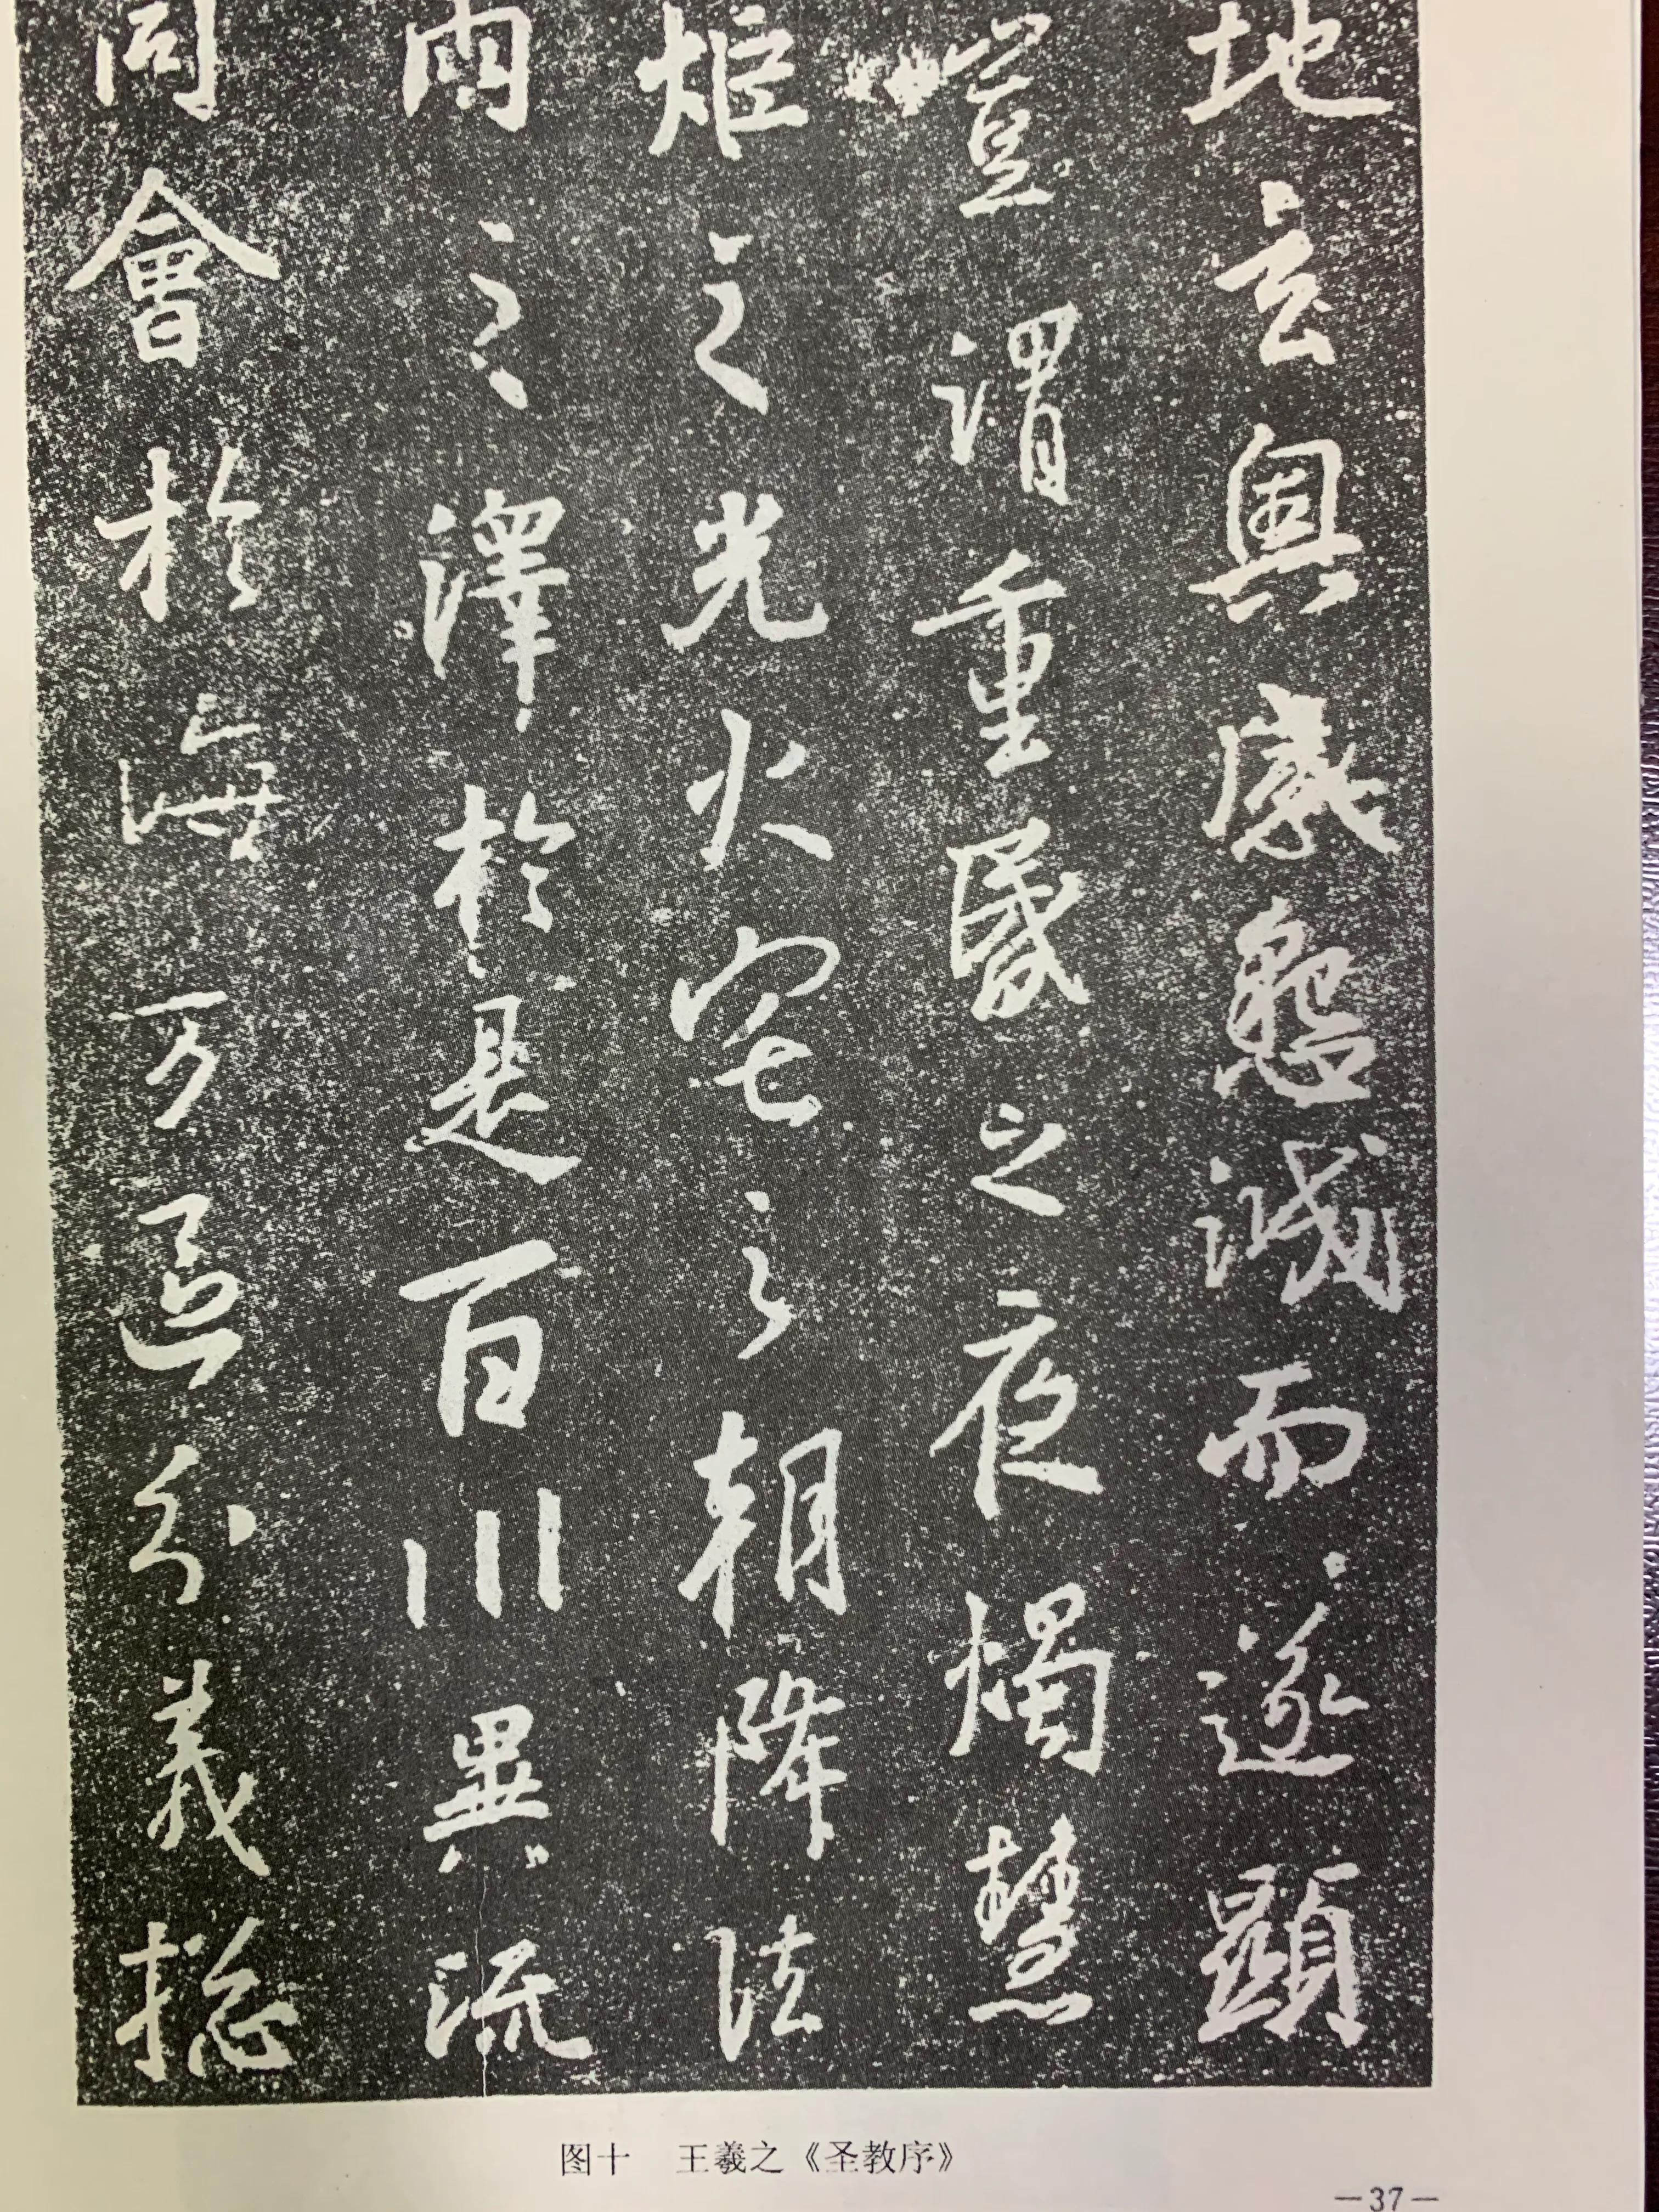 地玄奥感懇诚而遂顯
豈謂重昬之夜燭慧
炬之光火宅之朝降法
雨之澤於是百川異流
同會於海万區分義揔
图十 王羲之《圣教序》
—37—